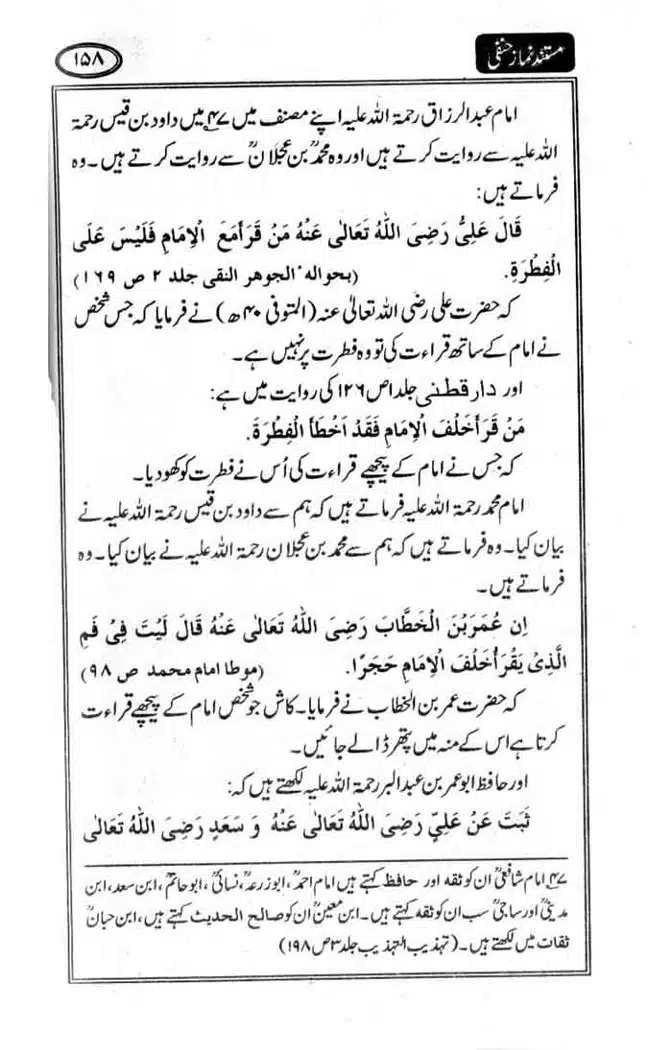 مستند نماز حنفی
۱۵۸
امام عبدالرزاق رحمۃ اللہ علیہ اپنے مصنف میں ۴۷؎ میں داود بن قیس رحمۃ
اللہ علیہ سے روایت کرتے ہیں اور وہ محمدؒ بن عجلانؒ سے روایت کرتے ہیں۔ وہ
فرماتے ہیں:
قَالَ عَلِیُّ رَضِیَ اللّٰہُ تَعَالٰی عَنْہُ مَنْ قَرَأمَعَ الْاِمَامِ فَلَیْسَ عَلَی
الْفِطْرَۃِ. (بحوالہ الجوھر النقی جلد ۲ ص ۱۶۹)
کہ حضرت علی رضی اللہ تعالیٰ عنہ (المتوفی ۴۰ھ) نے فرمایا کہ جس شخص
نے امام کے ساتھ قراءت کی تو وہ فطرت پر نہیں ہے۔
اور دار قطنی جلد۱ص ۱۲۶ کی روایت میں ہے:
مَنْ قَرَأخَلْفَ الْاِمَامِ فَقَدْ اَخْطَأ الْفِطْرَۃَ.
کہ جس نے امام کے پیچھے قراءت کی اُس نے فطرت کو کھو دیا۔
امام محمد رحمۃ اللہ علیہ فرماتے ہیں کہ ہم سے داود بن قیس رحمۃ اللہ علیہ نے
بیان کیا۔ وہ فرماتے ہیں کہ ہم سے محمد بن عجلان رحمۃ اللہ علیہ نے بیان کیا۔ وہ
فرماتے ہیں۔
اِن عُمَرَبْنَ الْخَطَّابَ رَضِیَ اللّٰہُ تَعَالٰی عَنْہُ قَالَ لَیْتَ فِیْ فَمِ
الَّذِیْ یَقْرَأُخَلْفَ الْاِمَامِ حَجَرًا. (موطا امام محمد ص ۹۸)
کہ حضرت عمر بن الخطاب نے فرمایا۔ کاش جو شخص امام کے پیچھے قراءت
کرتا ہے اس کے منہ میں پتھر ڈالے جائیں۔
اور حافظ ابو عمر بن عبدالبر رحمۃ اللہ علیہ لکھتے ہیں کہ:
ثَبَتَ عَنْ عَلِیٍّ رَضِیَ اللّٰہُ تَعَالٰی عَنْہُ وَ سَعَدٍ رَضِیَ اللّٰہُ تَعَالٰی
۴۷؎ امام شافعیؒ ان کو ثقہ اور حافظ کہتے ہیں امام احمدؒ، ابوزرعہؒ، نسائیؒ، ابوحاتمؒ، ابن سعد، ابن
مدینیؒ اور ساجیؒ سب ان کو ثقہ کہتے ہیں۔ ابن معینؒ ان کو صالح الحدیث کہتے ہیں، ابن حبانؒ
ثقات میں لکھتے ہیں۔ (تہذیب التہذیب جلد ۳ ص ۱۹۸)